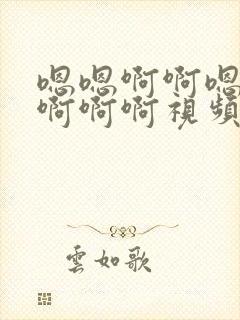 嗯嗯啊啊嗯
啊啊啊視頻
雲如歌